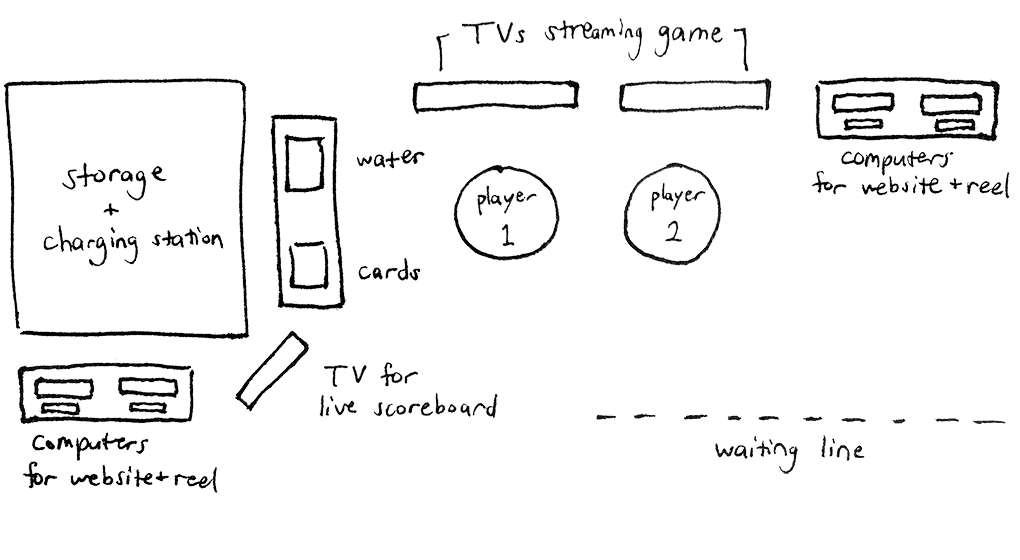 TVs streaming game
storage
+
charging station
water
cards
player
1
player
2
computers
for website + reel
TV for
live scoreboard
computers
for website + reel
waiting line